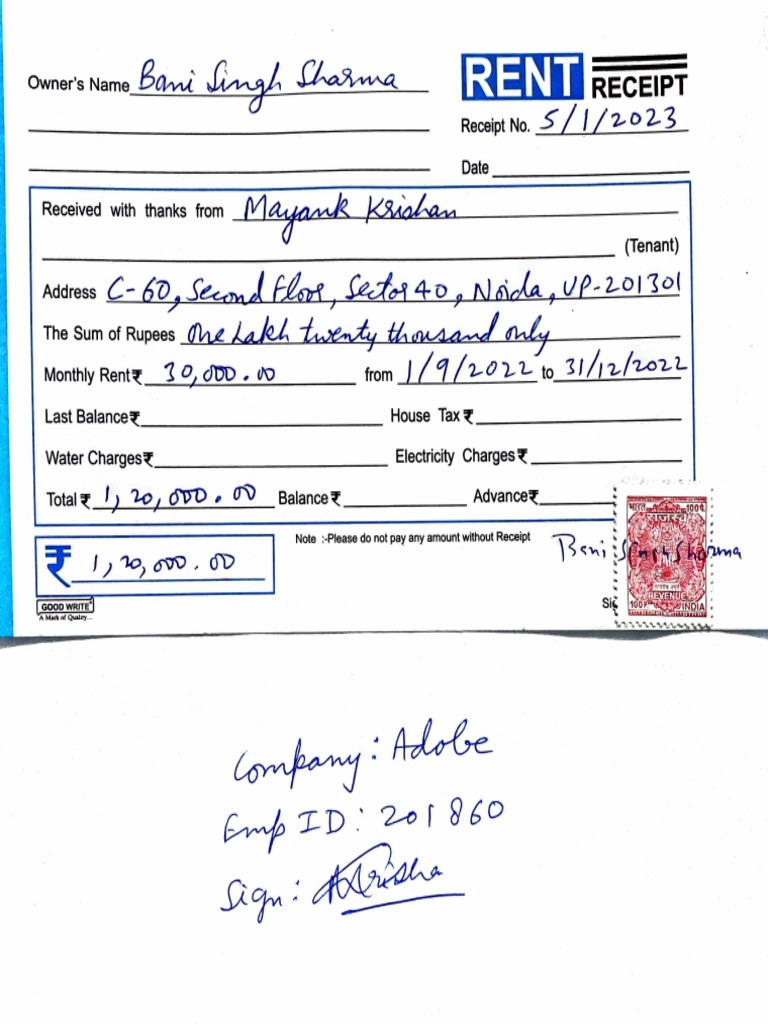 Owner's Name Bani Singh Sharma
RENT RECEIPT
Receipt No. 5/1/2023
Date
Received with thanks from Mayank Krishan
(Tenant)
Address C-60, Second Floor, Sector 40, Noida, UP-201301
The Sum of Rupees One Lakh twenty thousand only
Monthly Rent ₹ 30,000.00 from 1/9/2022 to 31/12/2022
Last Balance ₹ House Tax ₹
Water Charges ₹ Electricity Charges ₹
Total ₹ 1,20,000.00 Balance ₹ Advance ₹
₹ 1,20,000.00
Note :-Please do not pay any amount without Receipt
Bani Singh Sharma
भारत 100
REVENUE
100P INDIA
GOOD WRITE
A Mark of Quality...
Company: Adobe
Emp ID: 201860
Sign: Krisha